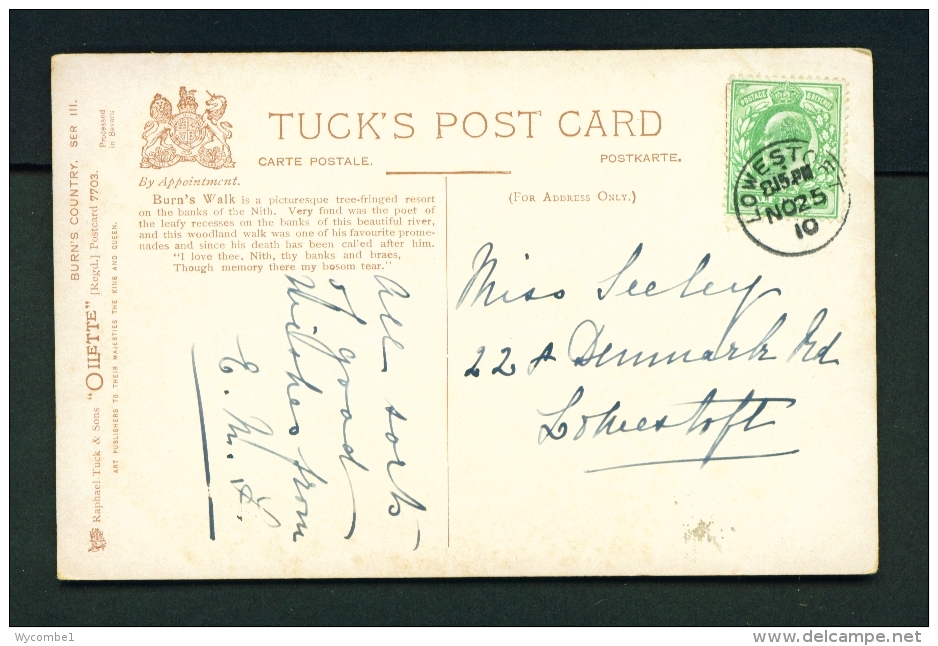 TUCK'S POST CARD
CARTE POSTALE.
POSTKARTE.
By Appointment.
(FOR ADDRESS ONLY.)
Burn's Walk is a picturesque tree-fringed resort
on the banks of the Nith. Very fond was the poet of
the leafy recesses on the banks of this beautiful river,
and this woodland walk was one of his favourite prome-
nades and since his death has been called after him.
"I love thee, Nith, thy banks and braes,
Though memory there my bosom tear."
BURN'S COUNTRY. SER III.
Processed
in Bavaria
Raphael Tuck & Sons "OILETTE" [Regd.] Postcard 7703.
ART PUBLISHERS TO THEIR MAJESTIES THE KING AND QUEEN.
All sorts
of good
wishes from
E. M.
Miss Seeley
22A Denmark Rd
Lowestoft
POSTAGE REVENUE
LOWESTOFT
8.15.PM
NO 25
10
Wycombe1
www.delcampe.net